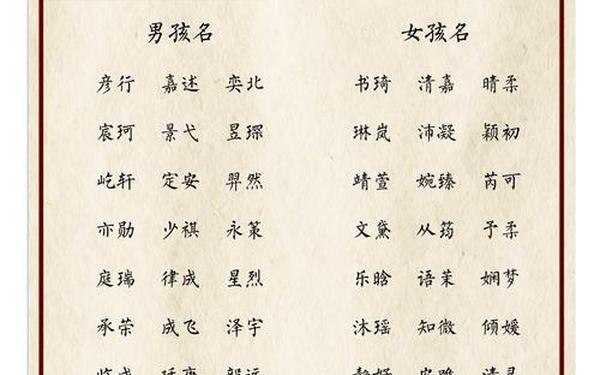 男孩名 女孩名
彦行 嘉述 奕北 书琦 清嘉 晴柔
宸珂 景弋 昱琛 琳岚 沛凝 颖初
屹轩 定安 羿然 靖萱 婉臻 芮可
亦勋 少祺 永策 文黛 从筠 予柔
庭瑞 律成 星烈 乐晗 语茉 娴梦
承荣 成飞 泽宇 沐瑶 知微 倾媛